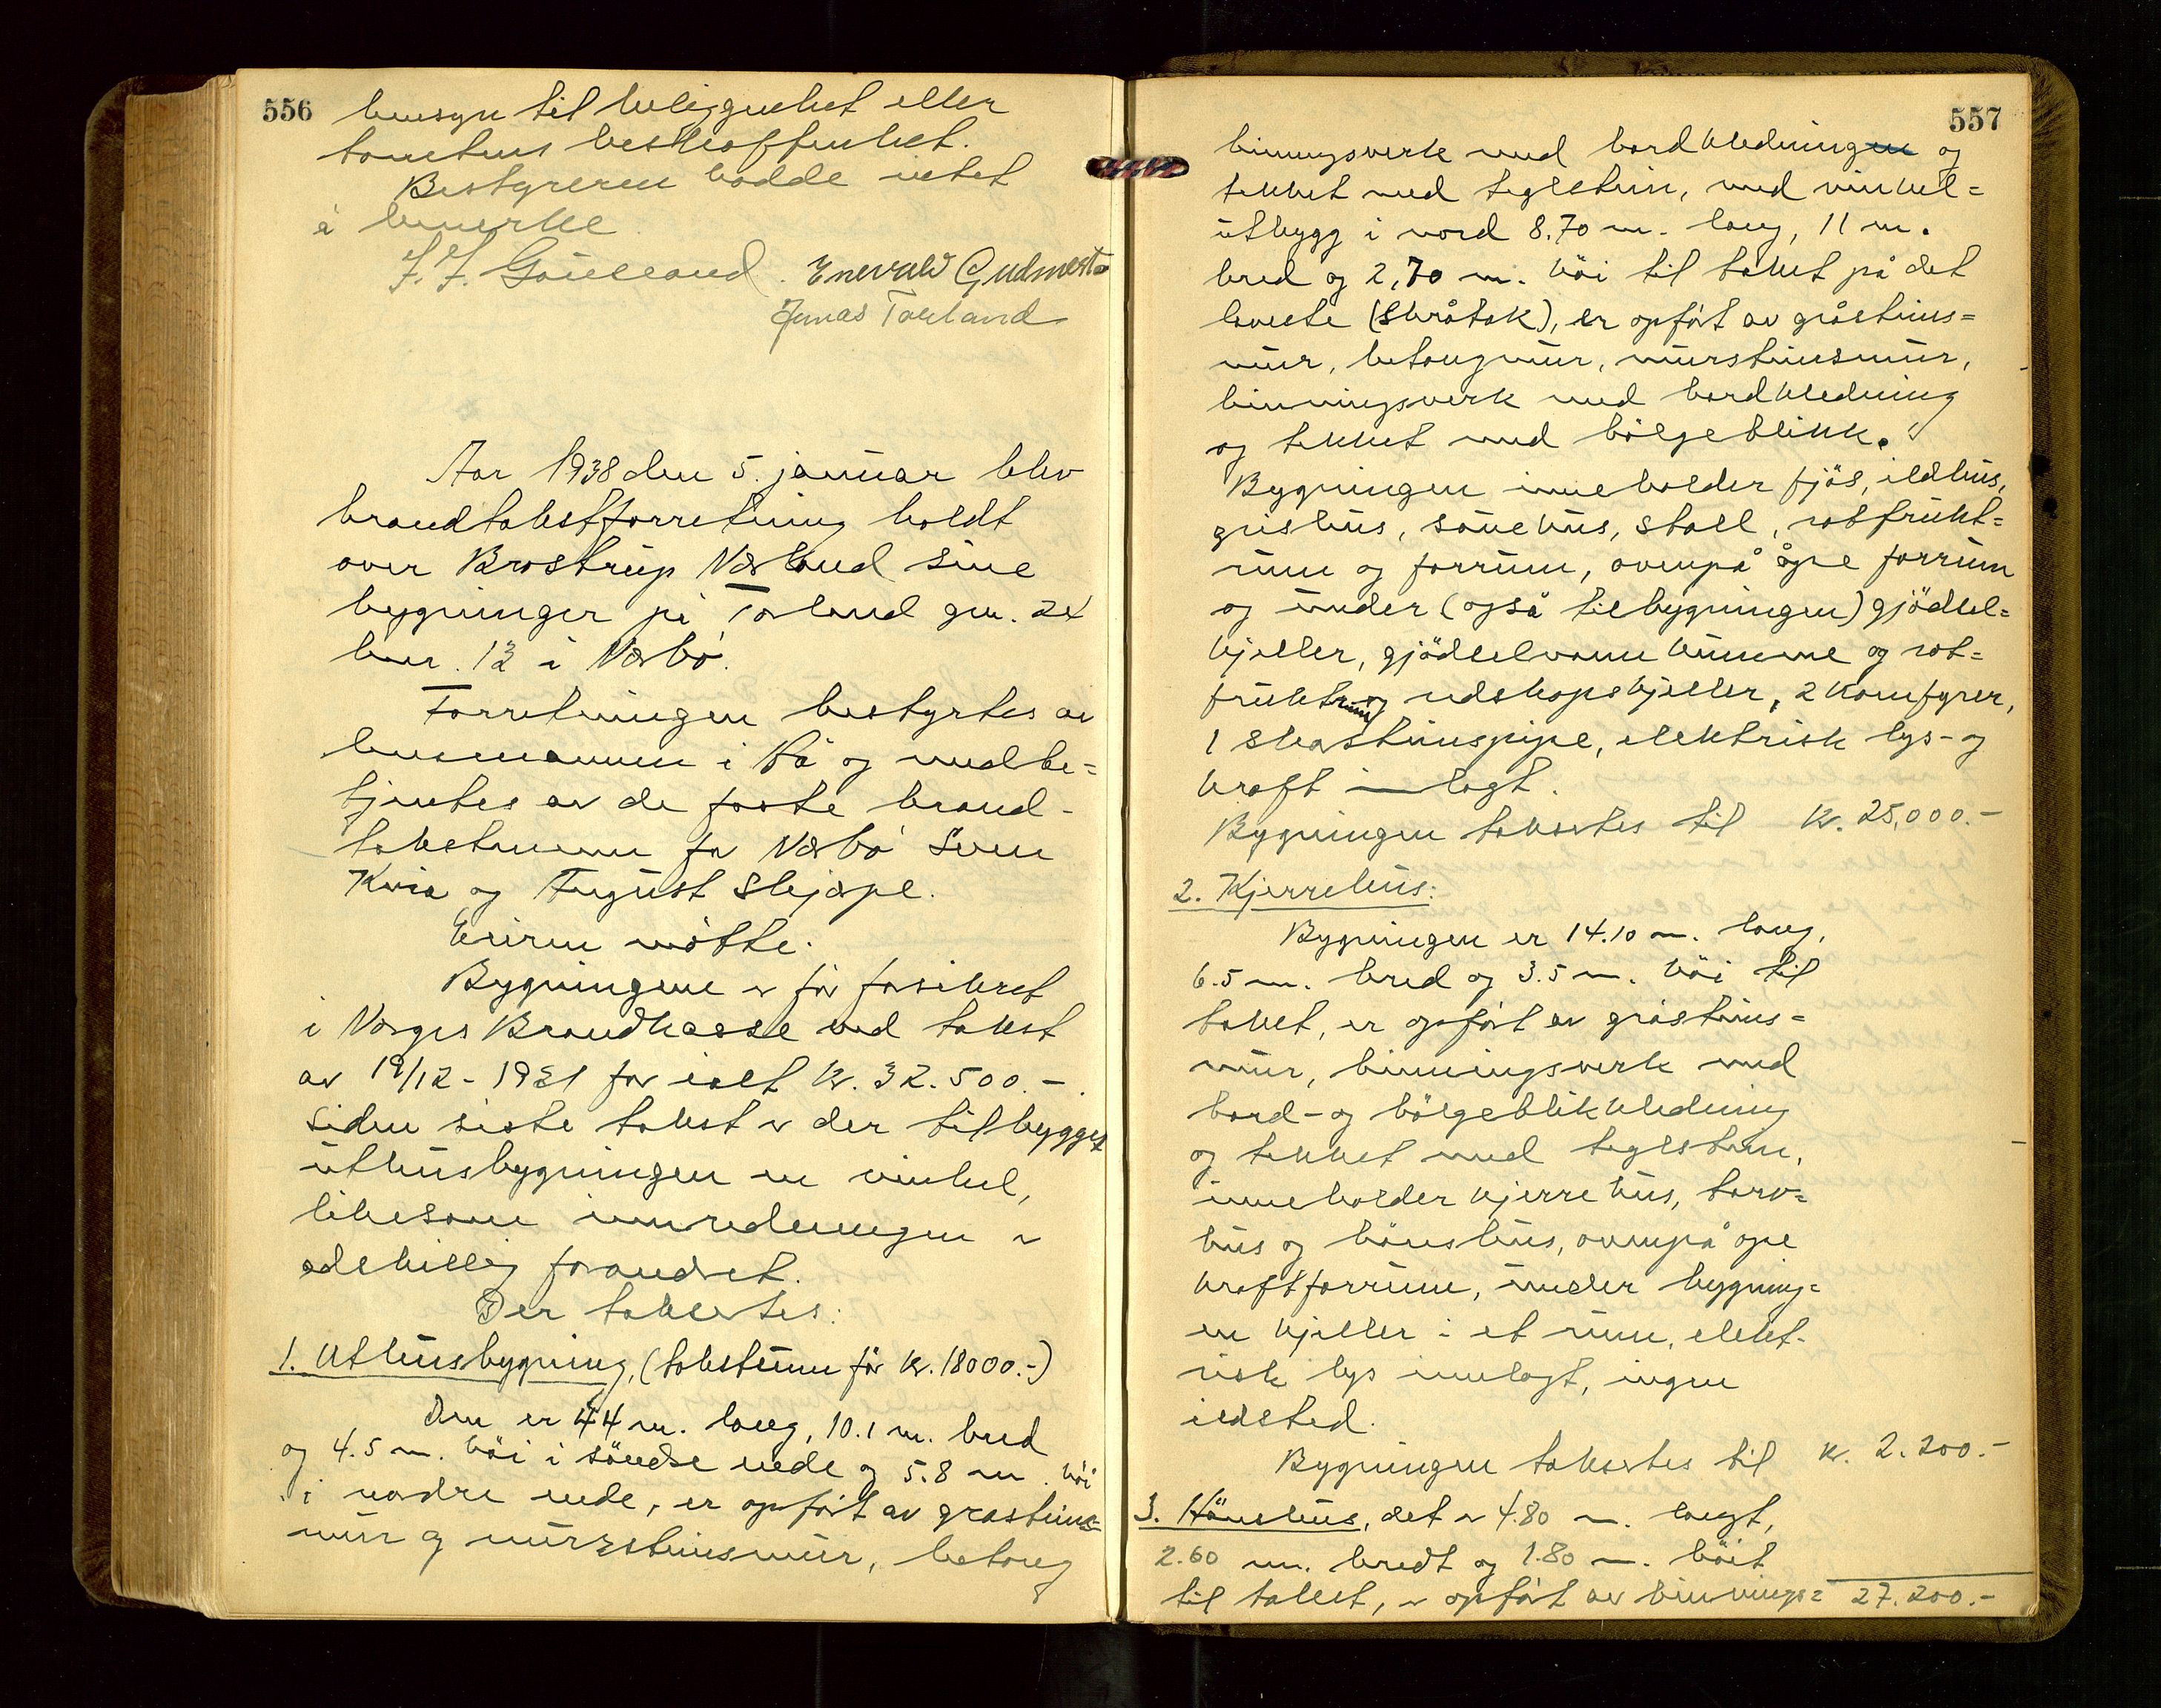 556
hensyn til beliggenhet eller
tomtens beskaffenhet.
Bestyreren hadde intet
å bemerke
J. J. Gausland. Enevald Gudmestad
Jonas Torland
Aar 1938 den 5. januar blev
brandtakstforretning holdt
over Brostrup Nærland sine
bygninger på Torland gnr. 21
bnr. 13 i Nærbø.
Forretningen bestyrtes av
lensmannen i Hå og medbe=
tjentes av de faste brand-
takstmenn for Nærbø Sven
Kvia og August Skjæpe.
Eieren møtte.
Bygningene er før forsikret
i Norges Brandkasse ved takst
av 19/12 - 1931 for ialt kr. 32.500.-.
Siden siste takst er der tilbygget
uthusbygningen en vinkel,
likesom innredningen er
adskillig forandret.
Der takseres:
1. Uthusbygning, (takstsum før kr. 18000.-)
Den er 44 m. lang, 10.1 m. bred
og 4.5 m. høi i søndre ende og 5.8 m. høi
i nordre ende, er opført av gråstens=
mur og murstensmur, betong
557
binningsverk med bordkledningen og
tekket med teglsten, med vinkel=
utbygg i nord 8.70 m. lang, 11 m.
bred og 2,70 m. høi til taket på det
laveste (skråtak), er opført av gråstens=
mur, betongmur, murstensmur,
binningsverk med bordkledning
og tekket med bølgeblikk.
Bygningen inneholder fjøs, ildhus,
grishus, sauehus, stall, rotfrukt=
rum og forrum, ovenpå åpne forrum
og under (også tilbygningen) gjødsel=
kjeller, gjødselvannkumme og rot=
fruktrum og redskapskjeller, 2 komfyrer,
1 skorstenspipe, elektrisk lys- og
kraft innlagt.
Bygningen taksertes til kr. 25,000.-
2. Kjerrehus:
Bygningen er 14.10 m. lang,
6.5 m. bred og 3.5 m. høi til
taket, er opført av gråstens=
mur, binningsverk med
bord- og bølgeblikkledning
og tekket med teglsten,
inneholder kjerrehus, torv=
hus og hønshus, ovenpå åpne
kraftforrum, under bygning=
en kjeller i et rum, elekt-
risk lys innlagt, ingen
ildsted.
Bygningen taksertes til kr. 2.200.-
3. Hønehus, det er 4.80 m. langt,
2.60 m. bredt og 1.80 m. høit
til taket, er opført av binnings= 27.200.-